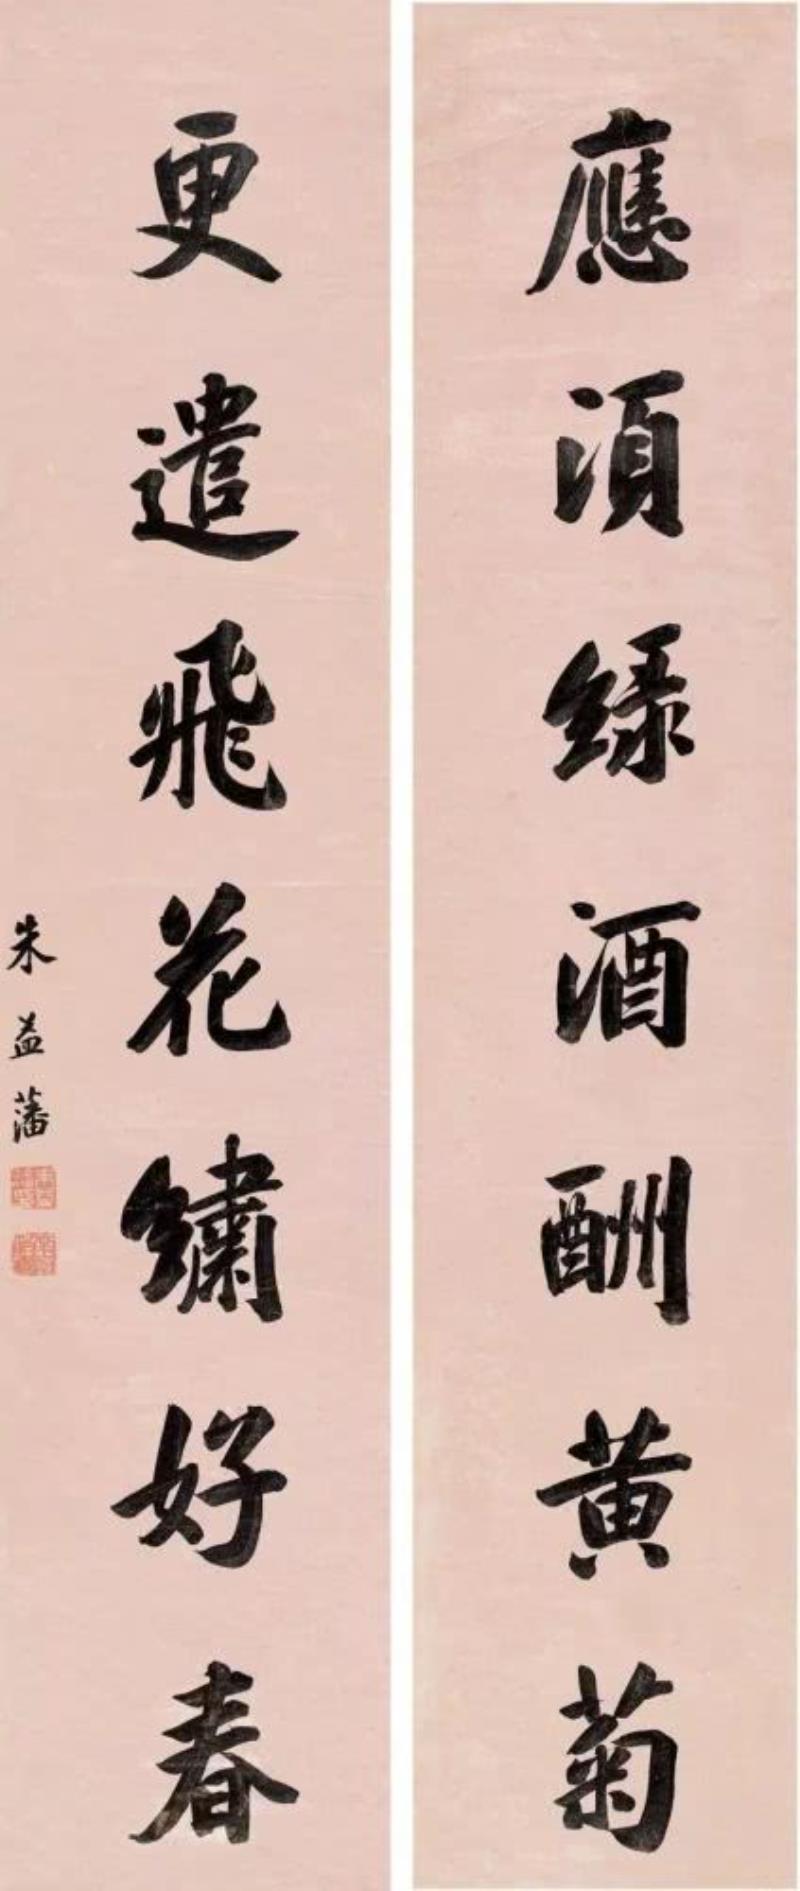 應須綠酒酬黃菊
更遣飛花繡好春
朱益藩